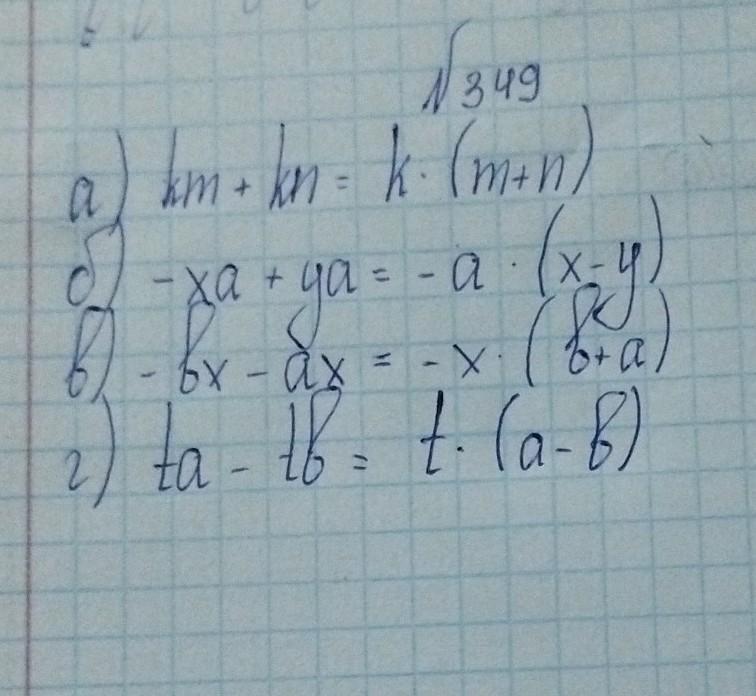 №349
а) km + kn = k · (m+n)
б) -xa + ya = -a · (x-y)
в) -bx - ax = -x · (b+a)
г) ta - tb = t · (a-b)